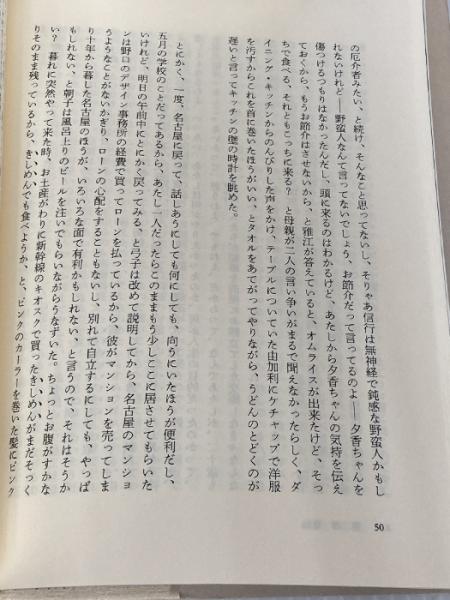 の厄介者みたい、と続け、そんなこと思ってないし、そりゃあ信行は無神経で鈍感な野蛮人かもし
れないけれど――野蛮人なんて言ってないでしょう、お節介だって言ってるのよ――夕香ちゃんを
傷つけるつもりはなかったんだし、頭に来るのはわかるけど、あたしから夕香ちゃんの気持を伝え
ておくから、もうお節介はさせないから、と雅江が答えていると、オムライスが出来たけど、そっ
ちで食べる、それともこっちに来る？　と母親が二人の言い争いがまるで聞えなかったらしく、ダ
イニング・キッチンからのんびりした声をかけ、テーブルについていた由加利にケチャップで洋服
を汚すからこれを首に巻いたほうがいい、とタオルをあてがってやりながら、うどんのとどくのが
遅いと言ってキッチンの壁の時計を眺めた。
とにかく、一度、名古屋に戻って、話しあうにしても何にしても、向うにいたほうが便利だし、
五月の学校のことだってあるから、あたし一人だったらこのままもう少しここに居させてもらいた
いけれど、明日の午前中にとにかく戻ってみる、と弓子は改めて説明してから、名古屋のマンショ
ンは野口のデザイン事務所の経費で買ってローンを払っているから、彼がマンションを売ってしま
うようなことがないかぎり、ローンの心配をすることもないし、別れて自立するにしても、やっぱ
り十年から暮した名古屋のほうが、いろいろな面で有利かもしれない、と言うので、それはそうか
もしれない、と朝子は風呂上りのビールを注いでもらいながらうなずいた。ちょっとお腹がすかな
い？　暮れに突然やって来た時、お土産がわりに新幹線のキオスクで買ったきしめんがまだそっく
りそのまま残っているから、きしめんでも食べようか、と、ピンクのカーラーを巻いた髪にピンク
50